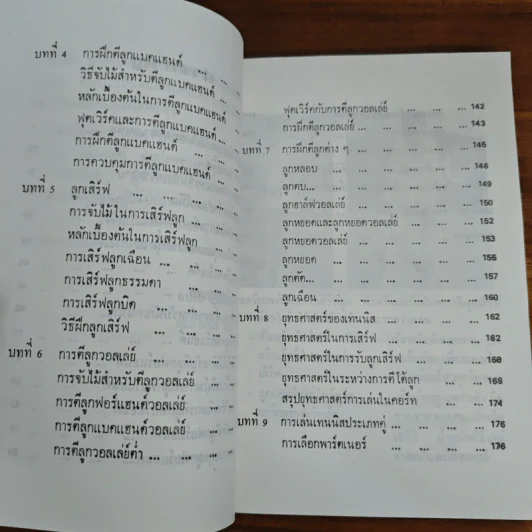 บทที่ 4 การฝึกตีลูกแบคแฮนด์ ... ...
วิธีจับไม้สำหรับตีลูกแบคแฮนด์ ...
หลักเบื้องต้นในการตีลูกแบคแฮนด์ ...
ฟุตเวิร์คและการตีลูกแบคแฮนด์ ...
การฝึกตีลูกแบคแฮนด์ ... ...
การควบคุมการตีลูกแบคแฮนด์ ...
บทที่ 5 ลูกเสิร์ฟ ... ... ... ...
การจับไม้ในการเสิร์ฟลูก ...
หลักเบื้องต้นในการเสิร์ฟลูก ...
การเสิร์ฟลูกเฉือน ... ... ...
การเสิร์ฟลูกธรรมดา ... ...
การเสิร์ฟลูกบิด ... ... ...
วิธีฝึกลูกเสิร์ฟ ... ... ...
บทที่ 6 การตีลูกวอลเล่ย์ ... ... ...
การจับไม้สำหรับตีลูกวอลเล่ย์ ...
การตีลูกฟอร์แฮนด์วอลเล่ย์ ...
การตีลูกแบคแฮนด์วอลเล่ย์ ...
การตีลูกวอลเล่ย์ต่ำ ... ... ...
ฟุตเวิร์คกับการตีลูกวอลเล่ย์ ... ... ... 142
การฝึกตีลูกวอลเล่ย์ ... ... ... ... 143
บทที่ 7 การฝึกตีลูกต่าง ๆ ... ... ... 145
ลูกหลอบ ... ... ... ... 146
ลูกตบ... ... ... ... ... 149
ลูกฮาล์ฟวอลเล่ย์ ... ... ... 150
ลูกหยอดและลูกหยอดวอลเล่ย์ ... ... 152
ลูกหยอดวอลเล่ย์ ... ... ... ... 153
ลูกหยอด ... ... ... ... 155
ลูกตัด... ... ... ... ... 157
ลูกเฉือน ... ... ... ... 160
บทที่ 8 ยุทธศาสตร์ของเทนนิส ... ... ... 162
ยุทธศาสตร์ในการเสิร์ฟ ... ... ... 162
ยุทธศาสตร์ในการรับลูกเสิร์ฟ ... ...
ยุทธศาสตร์ในระหว่างการตีโต้ลูก ... ... 168
สรุปยุทธศาสตร์การเล่นในคอร์ท ... ... 174
บทที่ 9 การเล่นเทนนิสประเภทคู่ ... ... ... 176
การเลือกพาร์ตเนอร์ ... ... ... ... 176